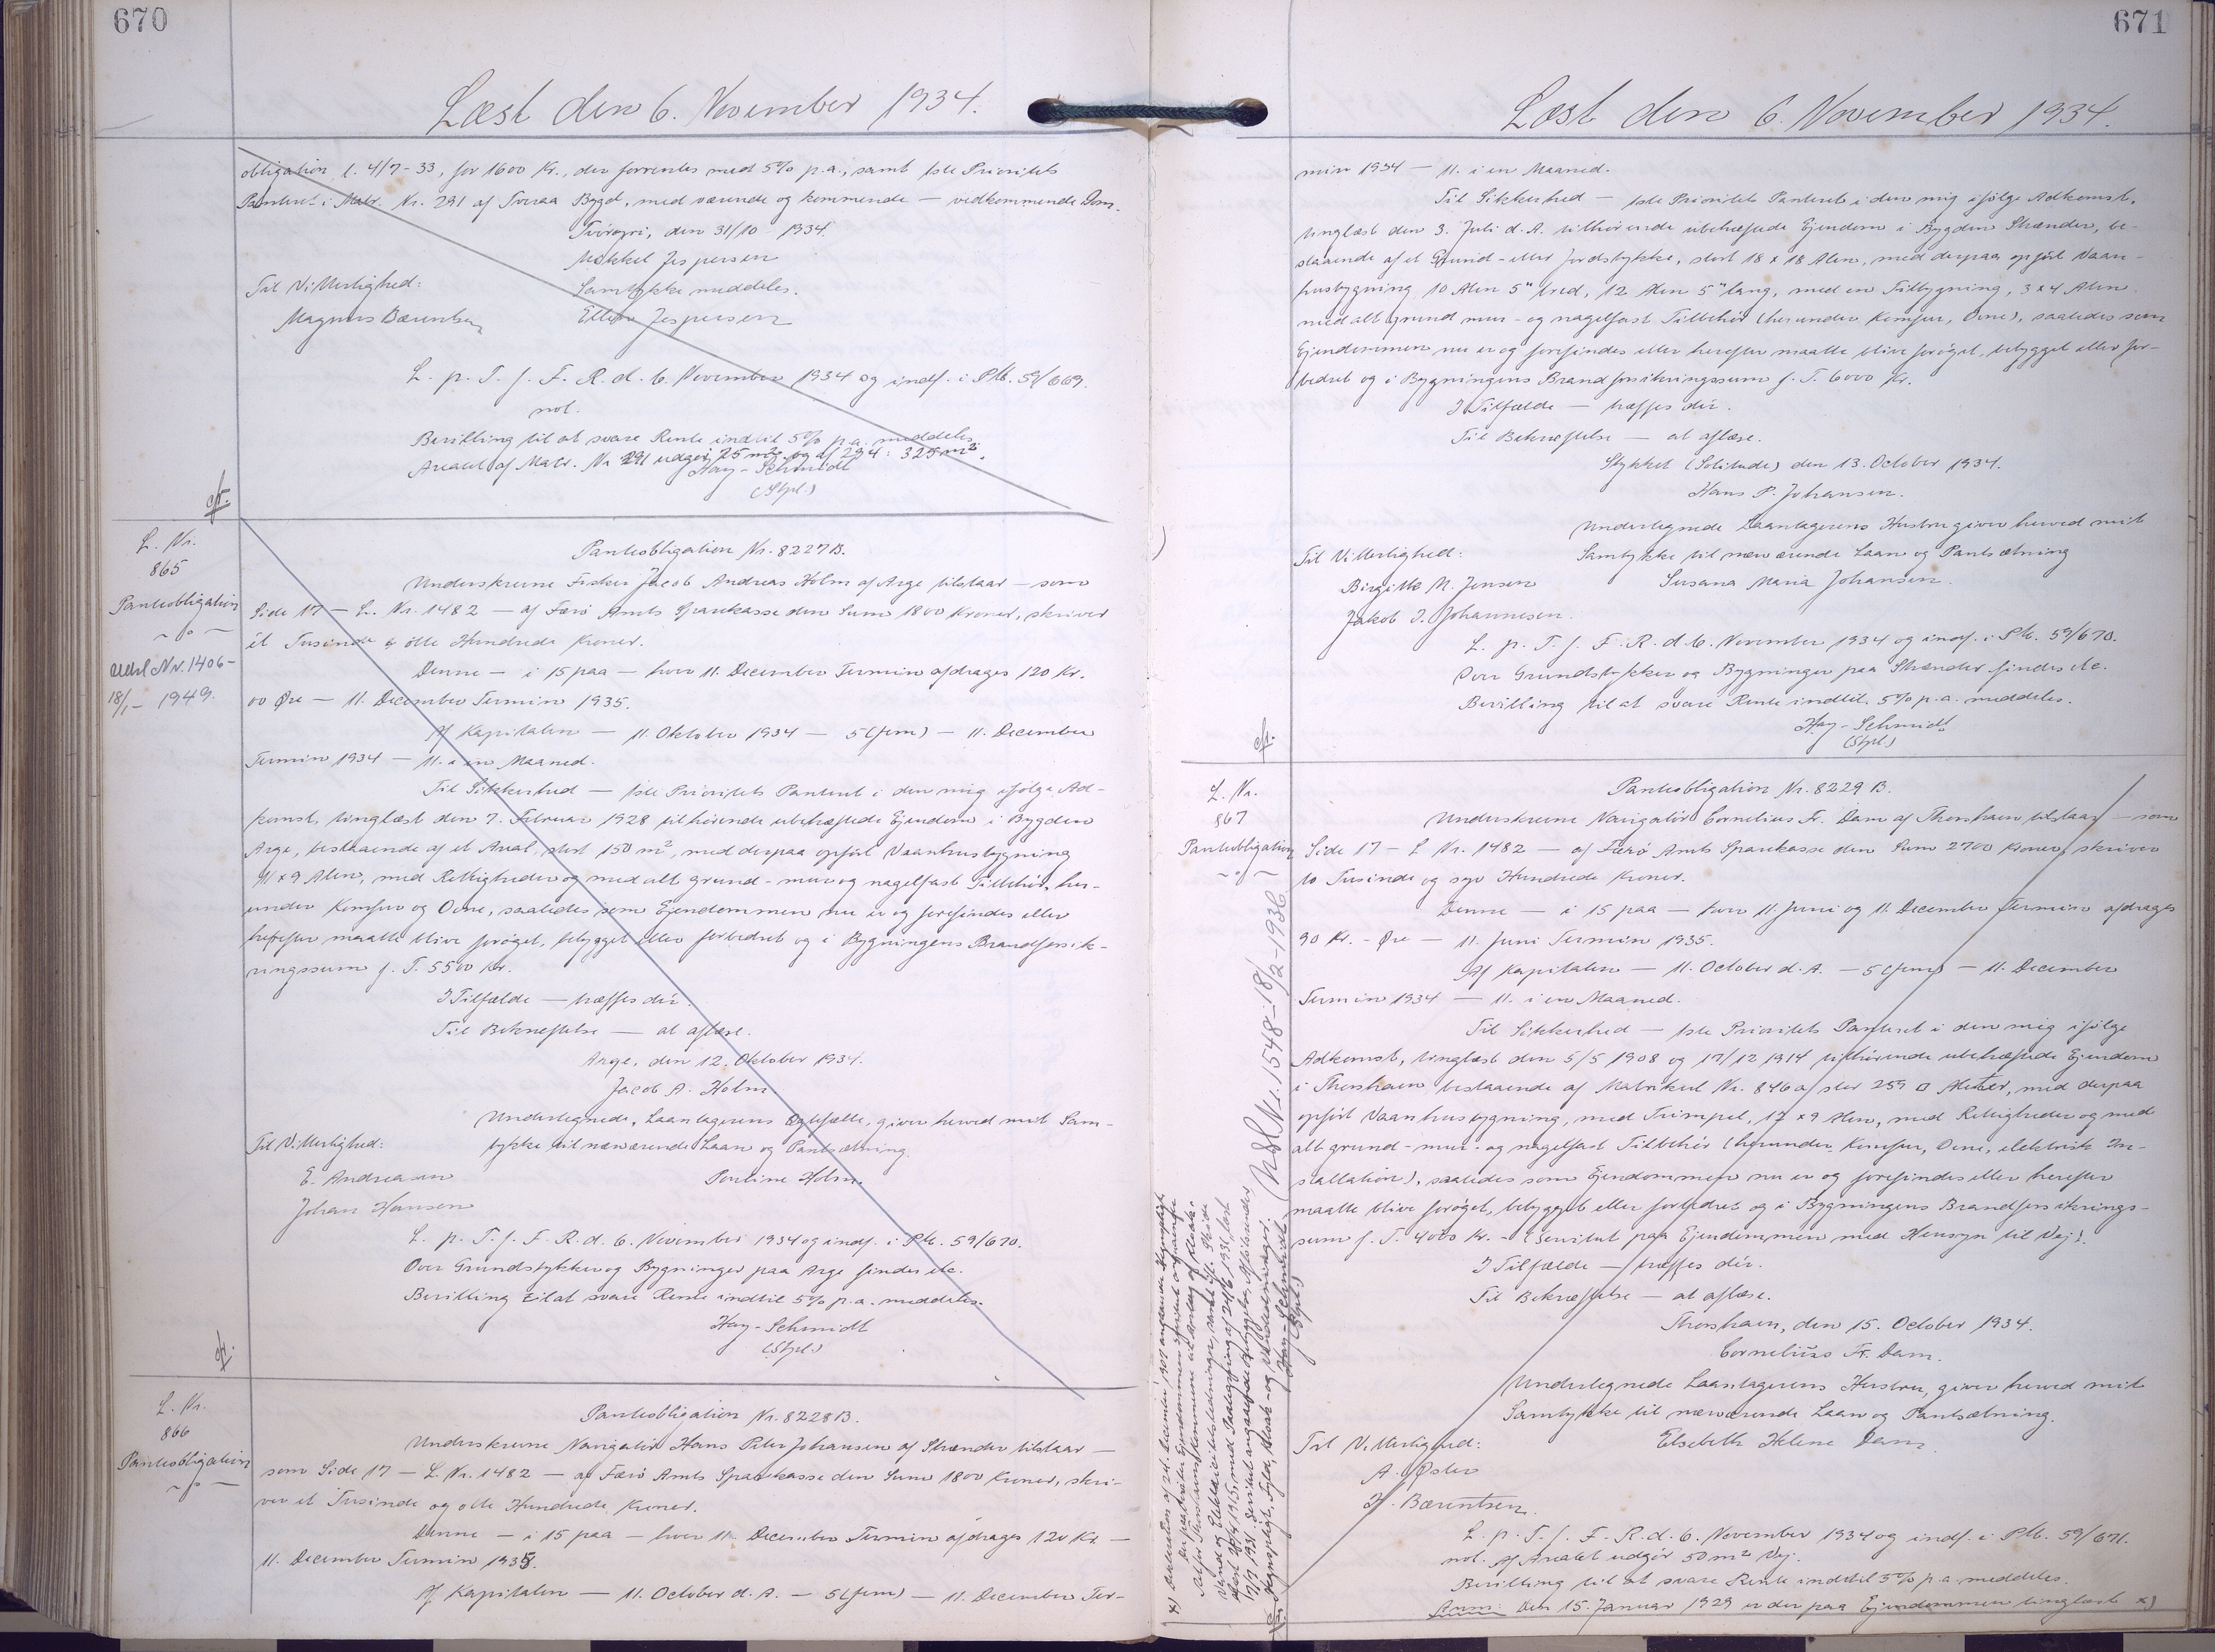 670
Læst den 6. November 1934.
obligation, l. 4/7-33, for 1600 Kr., der forrentes med 5% p.a., samt 1ste Prioritets
Panteret i Matr. Nr. 291 af Tveraa Bygd, med værende og kommende — vedkommende Dom.
Tvöroyri, den 31/10 1934.
Mikkel Jespersen
Til Vitterlighed:
Samtykke meddeles.
Magnus Bærentsen
Jespersen
L. p. T. f. F. R. d. 6. November 1934 og indf. i Ptb. 59/669.
not.
Bevilling til at svare Rente indtil 5% p.a. meddeles.
Arealet af Matr. Nr. 291 udgør 25 m² og af 294: 325 m².
Hay-Schmidt
(Stpl.)
cfr.
L. Nr.
865
Panteobligation
Udsl Nr. 1406-
18/1- 1949.
Panteobligation Nr. 8227B.
Underskrevne Fisker Jacob Andreas Holm af Arge tilstaar — som
Side 17 — L. Nr. 1482 — af Færö Amts Sparekasse den Sum 1800 Kroner, skriver
et Tusinde & otte Hundrede Kroner.
Denne — i 15 paa — hver 11. December Termin afdrages 120 Kr.
00 Øre — 11. December Termin 1935.
Af Kapitalen — 11. Oktober 1934 — 5 (fem) — 11. December
Termin 1934 — 11. i en Maaned.
Til Sikkerhed — 1ste Prioritets Panteret i den mig ifölge Ad-
komst, tinglæst den 7. Februar 1928 tilhörende ubehæftede Ejendom i Bygden
Arge, bestaaende af et Areal, stort 150 m², med derpaa opfört Vaanhusbygning
11 x 9 Alen, med Rettigheder og med alt grund- mur og nagelfast Tilbehör, her-
under Komfur og Ovne, saaledes som Ejendommen nu er og forefindes eller
herefter maatte blive foröget, bebygget eller forbedret og i Bygningens Brandforsik-
ringssum f. T. 5500 Kr.
I Tilfælde — træffes dér.
Til Bekræftelse — at aflæse.
Arge, den 12. Oktober 1934.
Jacob A. Holm
Undertegnede, Laantagerens Ægtefælle, giver herved mit Sam-
Til Vitterlighed:
tykke til nærværende Laan og Pantsætning.
E. Andreasen
Pouline Holm.
Johan Hansen
L. p. T. f. F. R. d. 6. November 1934 og indf. i Ptb. 59/670.
Over Grundstykker og Bygninger paa Arge findes etc.
Bevilling til at svare Rente indtil 5% p.a. meddeles.
Hay-Schmidt
(Stpl.)
cfr.
L. Nr.
866
Panteobligation
Panteobligation Nr. 8228B.
Underskrevne Navigatör Hans Peter Johansen af Strænder tilstaar —
som Side 17 — L. Nr. 1482 — af Færö Amts Sparekasse den Sum 1800 Kroner, skri-
ver et Tusinde og otte Hundrede Kroner.
Denne — i 15 paa — hver 11. December Termin afdrages 120 Kr. —
11. December Termin 1935.
Af Kapitalen — 11. October d. A. — 5 (fem) — 11. December Ter-
671
Læst den 6. November 1934.
min 1934 — 11. i en Maaned.
Til Sikkerhed — 1ste Prioritets Panteret i den mig ifölge Adkomst,
tinglæst den 3. Juli d. A. tilhörende ubehæftede Ejendom i Bygden Strænder, be-
staaende af et Grund- eller Jordstykke, stort 18 x 18 Alen, med derpaa opfört Vaan-
husbygning, 10 Alen 5" bred, 12 Alen 5" lang, med en Tilbygning, 3 x 4 Alen
med alt grund mur- og nagelfast Tilbehör (herunder Komfur, Ovne), saaledes som
Ejendommen nu er og forefindes eller herefter maatte blive foröget, bebygget eller for-
bedret og i Bygningens Brandforsikringssum f. T. 6000 Kr.
I Tilfælde — træffes dér.
Til Bekræftelse — at aflæse.
Stykket (Solitude) den 13. October 1934.
Hans P. Johansen.
Undertegnede Laantagerens Hustru giver herved mit
Til Vitterlighed:
Samtykke til nærværende Laan og Pantsætning
Birgitte M. Jensen
Susana Maria Johansen.
Jakob J. Johannesen.
L. p. T. f. F. R. d. 6. November 1934 og indf. i Ptb. 59/670.
Over Grundstykker og Bygninger paa Strænder findes etc.
Bevilling til at svare Rente indtil 5% p.a. meddeles.
Hay-Schmidt
(Stpl.)
cfr.
L. Nr.
867
Panteobligation
Panteobligation Nr. 8229 B.
Underskrevne Navigatör Cornelius Fr. Dam af Thorshavn tilstaar — som
Side 17 — L Nr. 1482 — af Færö Amts Sparekasse den Sum 2700 Kroner, skriver
to Tusinde og syv Hundrede Kroner.
Denne — i 15 paa — hver 11 Juni og 11. December Termin afdrages
90 Kr. - Øre — 11. Juni Termin 1935.
Af Kapitalen — 11. October d. A. — 5 (fem) — 11. December
Termin 1934 — 11. i en Maaned.
Til Sikkerhed — 1ste Prioritets Panteret i den mig ifölge
Adkomst, tinglæst den 5/5 1908 og 17/12 1914 tilhörende ubehæftede Ejendom
i Thorshavn bestaaende af Matrikul Nr. 846a stor 259 □ Meter, med derpaa
opfört Vaanhusbygning, med Trimpel, 17 x 9 Alen, med Rettigheder og med
alt grund- mur- og nagelfast Tilbehör (herunder Komfur, Ovne, elektrisk In-
stallation), saaledes som Ejendommen nu er og forefindes eller herefter
maatte blive foröget, bebygget eller forbedret og i Bygningens Brandforsikrings-
sum f. T. 4000 Kr. - (Servitut paa Ejendommen med Hensyn til Vej).
I Tilfælde — træffes dér.
Til Bekræftelse — at aflæse.
Thorshavn, den 15. October 1934.
Cornelius Fr. Dam.
Undertegnede Laantagerens Hustru, giver herved mit
Samtykke til nærværende Laan og Pantsætning.
Til Vitterlighed:
Elsebeth Helene Dam
A. Öster
H. Bærentsen
L. p. T. f. F. R. d. 6. November 1934 og indf. i Ptb. 59/671.
not. Af Arealet udgör 50 m² Vej.
Bevilling til at svare Rente indtil 5% p.a. meddeles.
Anm: Den 15. Januar 1929 er der paa Ejendommen tinglæst x)
Hay-Schmidt
(Stpl.)
(Udsl Nr. 1548-18/2-1936